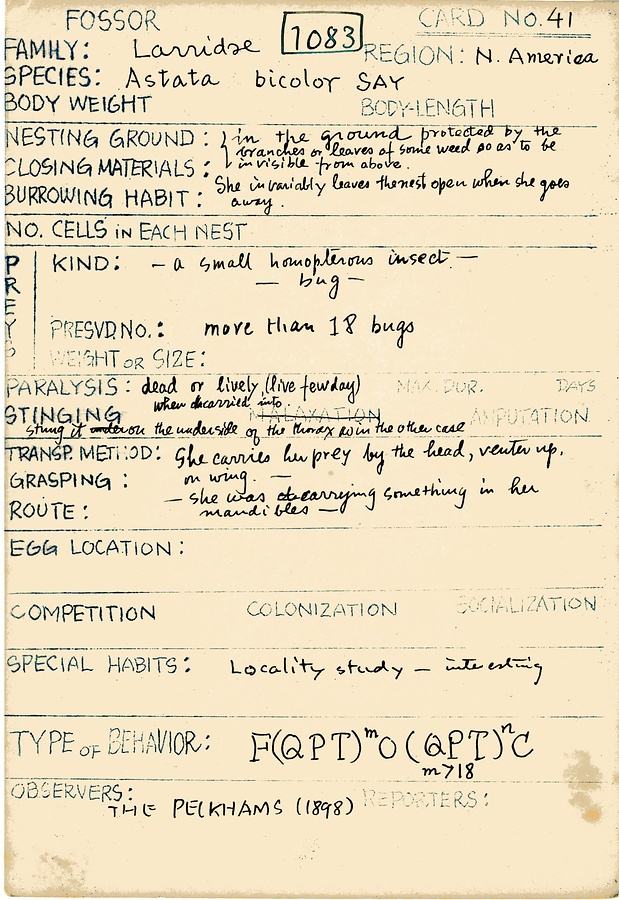 FOSSOR
1083
CARD No. 41
FAMILY: Larridae
REGION: N. America
SPECIES: Astata bicolor SAY
BODY WEIGHT BODY-LENGTH
NESTING GROUND: in the ground protected by the
branches or leaves of some weed so as to be
CLOSING MATERIALS: invisible from above.
BURROWING HABIT: She invariably leaves the nest open when she goes
away.
NO. CELLS iN EACH NEST
PREY
KIND: — a small homopterous insect. —
— bug —
PRESVD. NO.: more than 18 bugs
WEIGHT OR SIZE:
PARALYSIS: dead or lively (live few day) MAX. DUR. DAYS
when carried into.
STINGING MALAXATION AMPUTATION
stung it under on the underside of the thorax as in the other case
TRANSP. METHOD: She carries her prey by the head, venter up,
GRASPING: on wing. —
— she was carrying something in her
ROUTE: mandibles —
EGG LOCATION:
COMPETITION COLONIZATION SOCIALIZATION
SPECIAL HABITS: Locality study — interesting
TYPE OF BEHAVIOR: F(QPT)ᵐO(QPT)ⁿC
m>18
OBSERVERS: THE PECKHAMS (1898) REPORTERS: